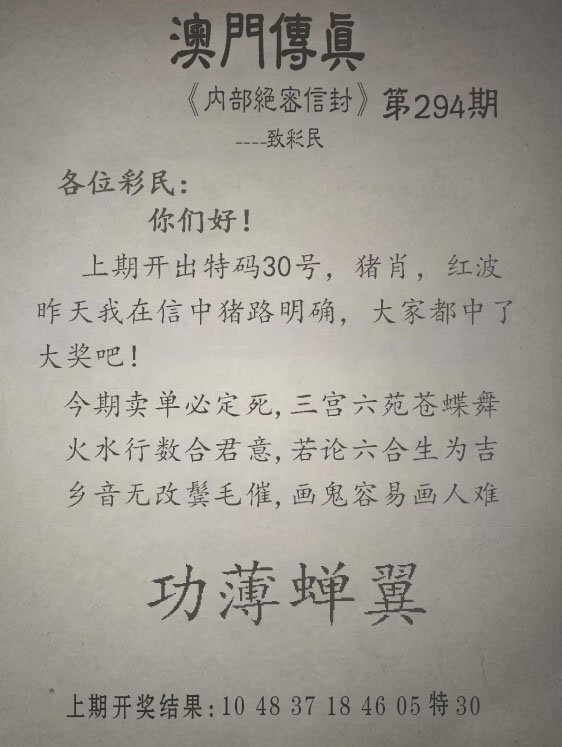 澳門傳真
《内部絕密信封》第294期
----致彩民
各位彩民：
你们好！
上期开出特码30号，猪肖，红波
昨天我在信中猪路明确，大家都中了
大奖吧！
今期卖单必定死,三宫六苑苍蝶舞
火水行数合君意,若论六合生为吉
乡音无改鬓毛催,画鬼容易画人难
功薄蝉翼
上期开奖结果:10 48 37 18 46 05特30